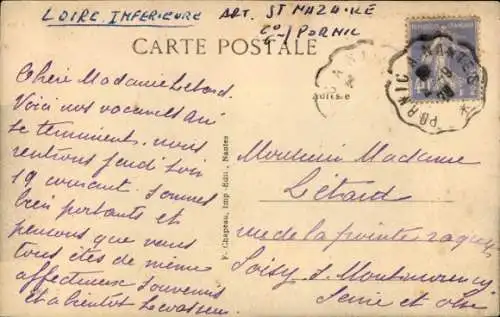 LOIRE INFERIEURE ART. ST NAZAIRE
CON PORNIC
CARTE POSTALE
PORNIC A NANTES
Chère Madame Létard.
Voici nos vacances qui
se terminent. nous
rentrons jeudi soir
19 courant. sommes
bien portants et
pensons que vous
tous êtes de même
affectueux souvenirs
et à bientôt Levasseur
F. Chapeau, Imp.-Edit., Nantes
Adresse
Monsieur Madame
Létard
rue de la pointe
Soisy s. Montmorency
Seine et Oise